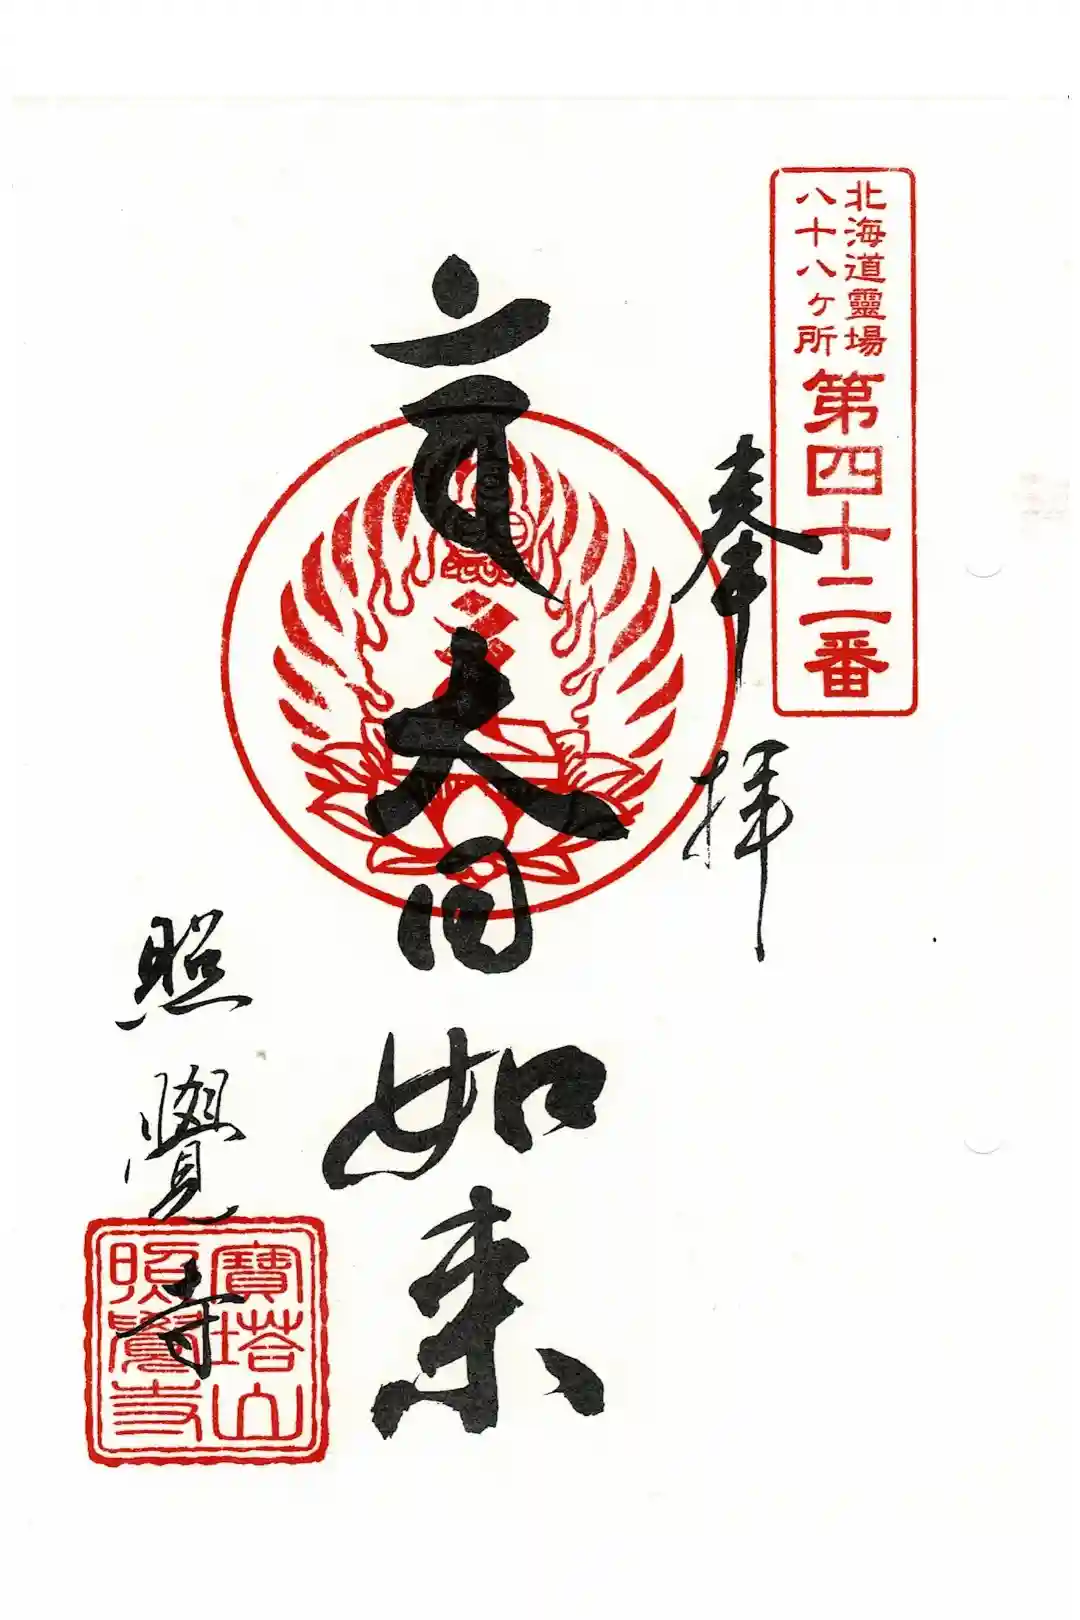 北海道靈場
八十八ヶ所
第四十二番
奉拝
大日如来
照覺寺
寳塔山
照覺寺